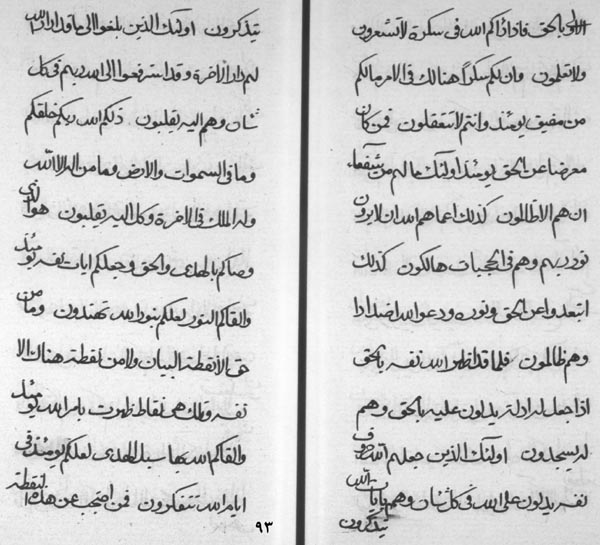 بالحق فاذا اراكم الله فى سكرة لا تشعرون
ولا تعلمون وان لكم سكرا هنالك فى الامر مالكم
من مفيق يومئذ وانتم لا تتعقلون فمن كان
معرضا عن الحق يومئذ اولئك ما لهم من شفعاء
ان هم الا ظالمون كذلك اعماهم الله ان لا يرون
نور ربهم وهم فى الحجبات هالكون كذلك
ابتعدوا عن الحق ونوره ودعوا لله اضدادا
وهم ظالمون فلما قد اظهر الله نفسه بالحق
اذا جعل له ادلة يدلون عليه بالحق وهم
له يسجدون اولئك الذين جعلهم الله حروف
نفسه يدلون على الله فى كل شان وهم بايات الله
يتذكرون
يتذكرون اولئك الذين بلغوا الى ما قد اراد الله
لهم دار الاخرة وقد استرفعوا الى الله ربهم فى كل
شان وهم اليه يقلبون ذلكم الله ربكم خلقكم
وما فى السموات والارض وما من اله الا الله
وله الملك فى الاخرة وكل اليه يقلبون هو الذى
وصاكم بالهدى والحق وجعلكم ايات نفسه يومئذ
والقاكم النور لعلكم بنور الله تهتدون وما من
حق الا نقطة البيان ولا من نقطة هناك الا
نفسه وتلك هى نقاط ظهرت بامر الله يومئذ
والقاكم الله بها سبل الهدى لعلكم يومئذ فى
ايام الله تتفكرون فمن احتجب عن هذه النقطة
٩٣